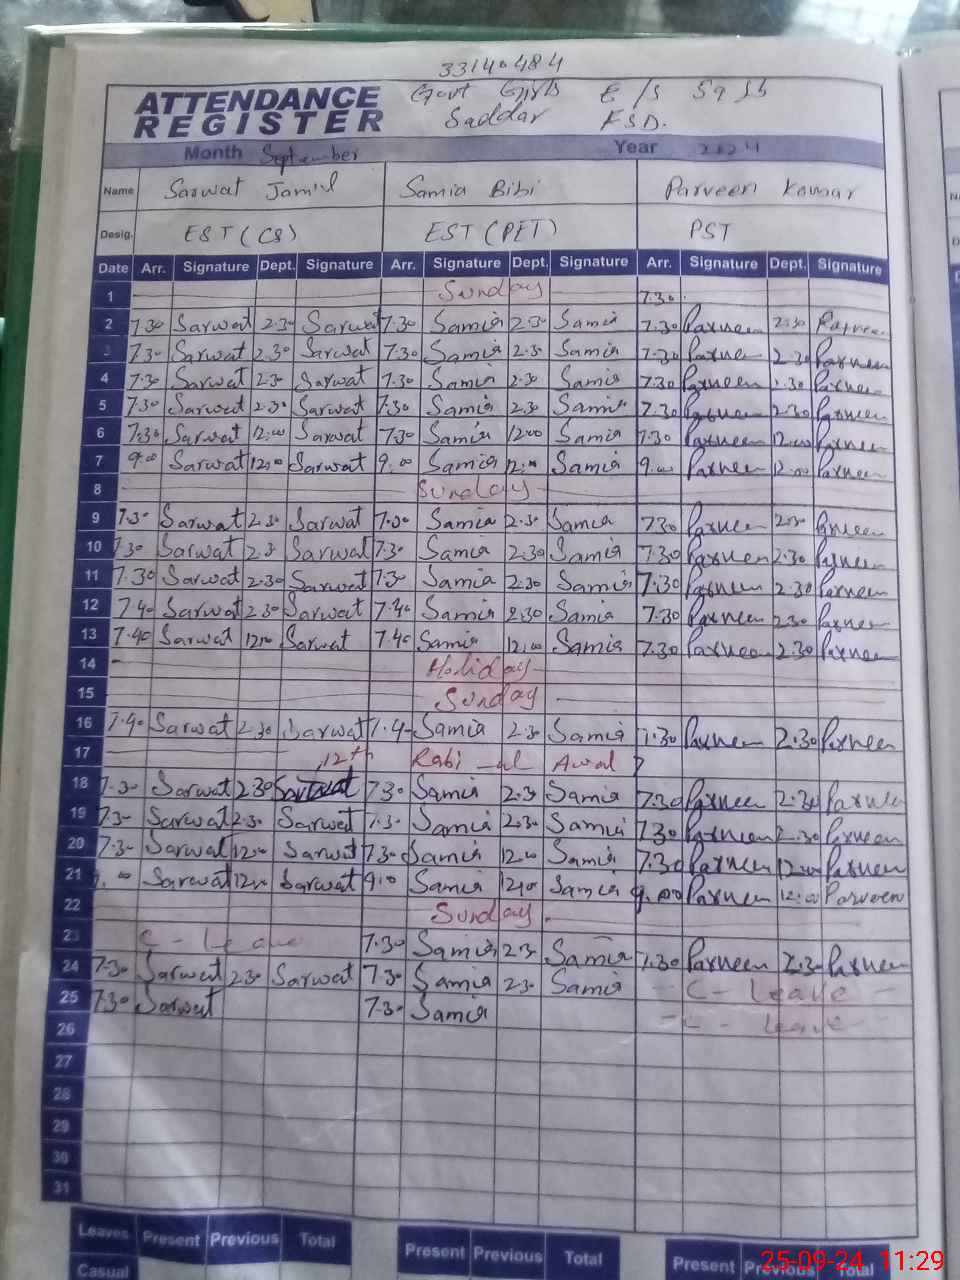 33140484
ATTENDANCE REGISTER
Govt Girls E/S 59 Jb
Saddar FSD.
Month September Year 2024
Name Sarwat Jamil Samia Bibi Parveen Kousar
Desig. EST (CS) EST (PET) PST
Date Arr. Signature Dept. Signature Arr. Signature Dept. Signature Arr. Signature Dept. Signature
1 Sunday 7.30
2 7.30 Sarwat 2.30 Sarwat 7.30 Samia 2.30 Samia 7.30 Parveen 2.30 Parveen
3 7.30 Sarwat 2.30 Sarwat 7.30 Samia 2.30 Samia 7.30 Parveen 2.30 Parveen
4 7.30 Sarwat 2.30 Sarwat 7.30 Samia 2.30 Samia 7.30 Parveen 2.30 Parveen
5 7.30 Sarwat 2.30 Sarwat 7.30 Samia 2.30 Samia 7.30 Parveen 2.30 Parveen
6 7.30 Sarwat 12.00 Sarwat 7.30 Samia 12.00 Samia 7.30 Parveen 12.00 Parveen
7 9.00 Sarwat 12.00 Sarwat 9.00 Samia 12.00 Samia 9.00 Parveen 12.00 Parveen
8 Sunday
9 7.30 Sarwat 2.30 Sarwat 7.30 Samia 2.30 Samia 7.30 Parveen 2.30 Parveen
10 7.30 Sarwat 2.30 Sarwat 7.30 Samia 2.30 Samia 7.30 Parveen 2.30 Parveen
11 7.30 Sarwat 2.30 Sarwat 7.30 Samia 2.30 Samia 7.30 Parveen 2.30 Parveen
12 7.40 Sarwat 2.30 Sarwat 7.40 Samia 2.30 Samia 7.30 Parveen 2.30 Parveen
13 7.40 Sarwat 12.00 Sarwat 7.40 Samia 12.00 Samia 7.30 Parveen 2.30 Parveen
14 Holiday
15 Sunday
16 7.40 Sarwat 2.30 Sarwat 7.40 Samia 2.30 Samia 7.30 Parveen 2.30 Parveen
17 12th Rabi-ul Awal
18 7.30 Sarwat 2.30 Sarwat 7.30 Samia 2.30 Samia 7.30 Parveen 2.30 Parveen
19 7.30 Sarwat 2.30 Sarwat 7.30 Samia 2.30 Samia 7.30 Parveen 2.30 Parveen
20 7.30 Sarwat 12.00 Sarwat 7.30 Samia 12.00 Samia 7.30 Parveen 12.00 Parveen
21 9.00 Sarwat 12.00 Sarwat 9.00 Samia 12.00 Samia 9.00 Parveen 12:00 Parveen
22 Sunday
23 C-Leave 7.30 Samia 2.30 Samia 7.30 Parveen 2.30 Parveen
24 7.30 Sarwat 2.30 Sarwat 7.30 Samia 2.30 Samia - C - Leave -
25 7.30 Sarwat 7.30 Samia - C - Leave -
26
27
28
29
30
31
Leaves Present Previous Total Present Previous Total Present Previous Total
Casual
25-09-24 11:29